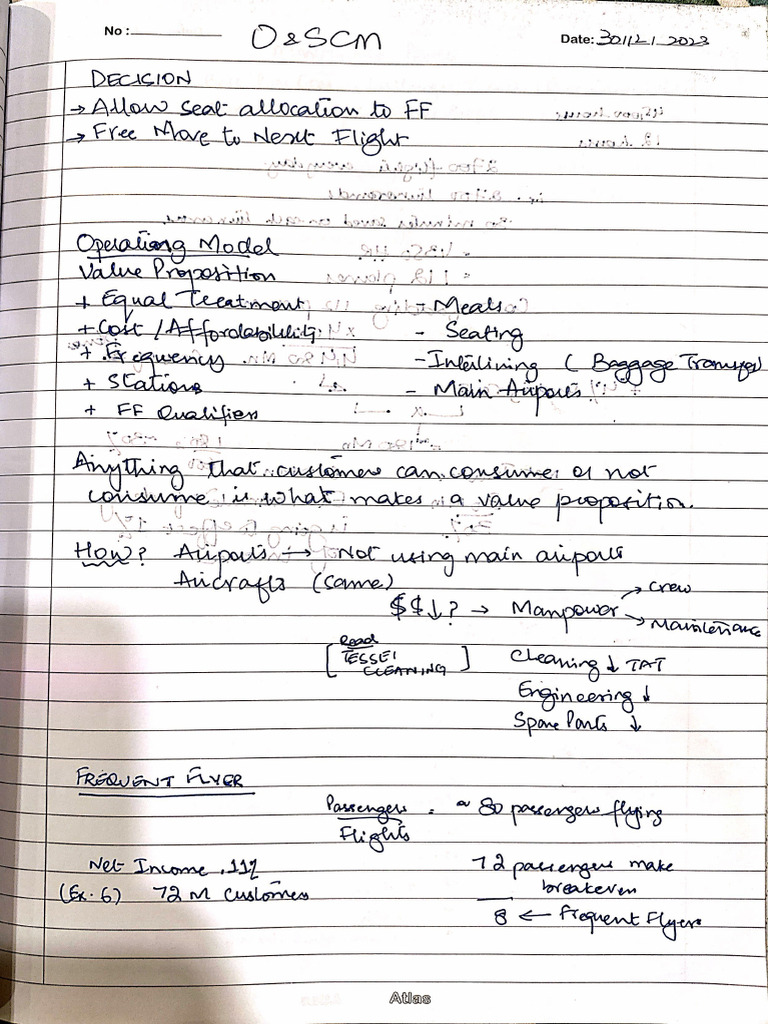 No :
O & SCM
Date: 30/12/2023
DECISION
→ Allow seat allocation to FF
→ Free Move to Next Flight
Operating Model
Value Proposition
+ Equal Treatment - Meals
+ Cost / Affordability - Seating
+ Frequency - Interlining ( Baggage Transfer)
+ Stations - Main Airports
+ FF Qualifier
Anything that customer can consume or not
consume, is what makes a value proposition.
How? Airports → Not using main airports
Aircrafts (same)
$$↓? → Manpower → Crew
→ Maintenance
[ Read TESSEI CLEANING ]
Cleaning ↓ TAT
Engineering ↓
Spare Parts ↓
FREQUENT FLYER
Passengers / Flights = ~ 80 passengers flying
Net Income .11%
(Ex. 6) 72 M customers
72 passengers make
breakeven
8 ← Frequent Flyers
Atlas